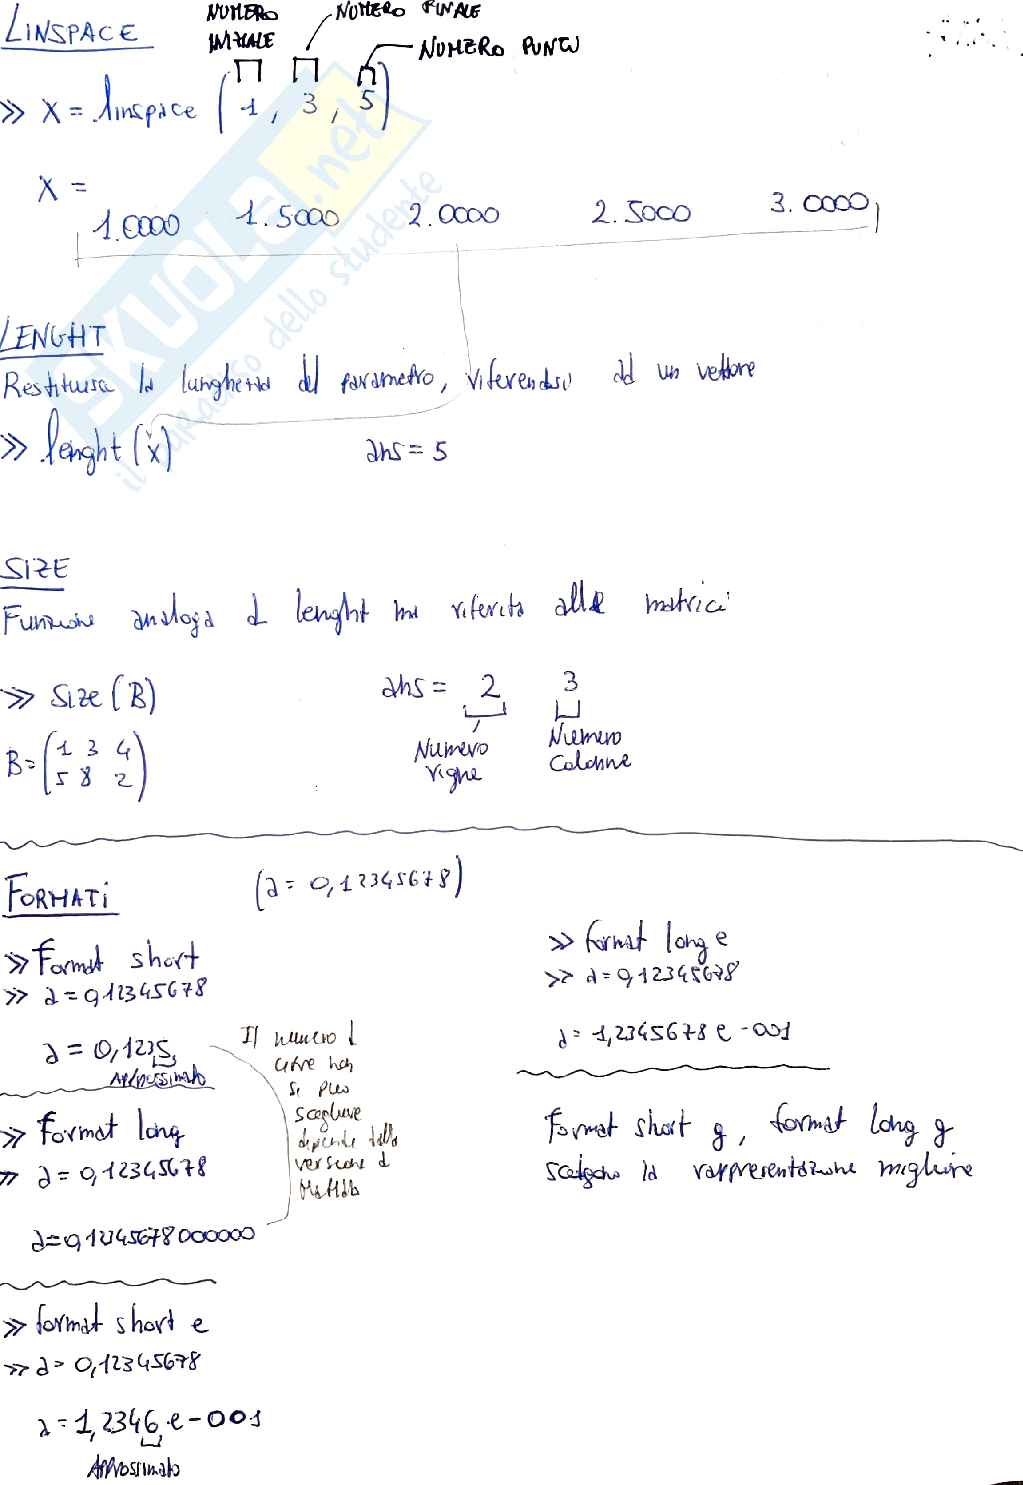 LINSPACE
NUMERO INIZIALE
NUMERO FINALE
NUMERO PUNTI
>> X = linspace (1, 3, 5)
X =
1.0000 1.5000 2.0000 2.5000 3.0000
LENGHT
Restituisce la lunghezza del parametro, riferendosi ad un vettore
>> lenght (x) ans = 5
SIZE
Funzione analoga a lenght ma riferita alle matrici
>> Size (B) ans = 2 3
Numero righe
Numero Colonne
B = (1 3 4
5 8 2)
FORMATI (a = 0,12345678)
>> Format short
>> a = 0,12345678
a = 0,1235
Approssimato
Il numero di
cifre non
si può
scegliere
dipende dalla
versione di
Matlab
>> Format long
>> a = 0,12345678
a = 0,12345678000000
>> format short e
>> a = 0,12345678
a = 1,2346 e-001
Approssimato
>> format long e
>> a = 0,12345678
a = 1,2345678 e-001
Format short g, format long g
scelgono la rappresentazione migliore
SKUOLA.net
il paradiso dello studente